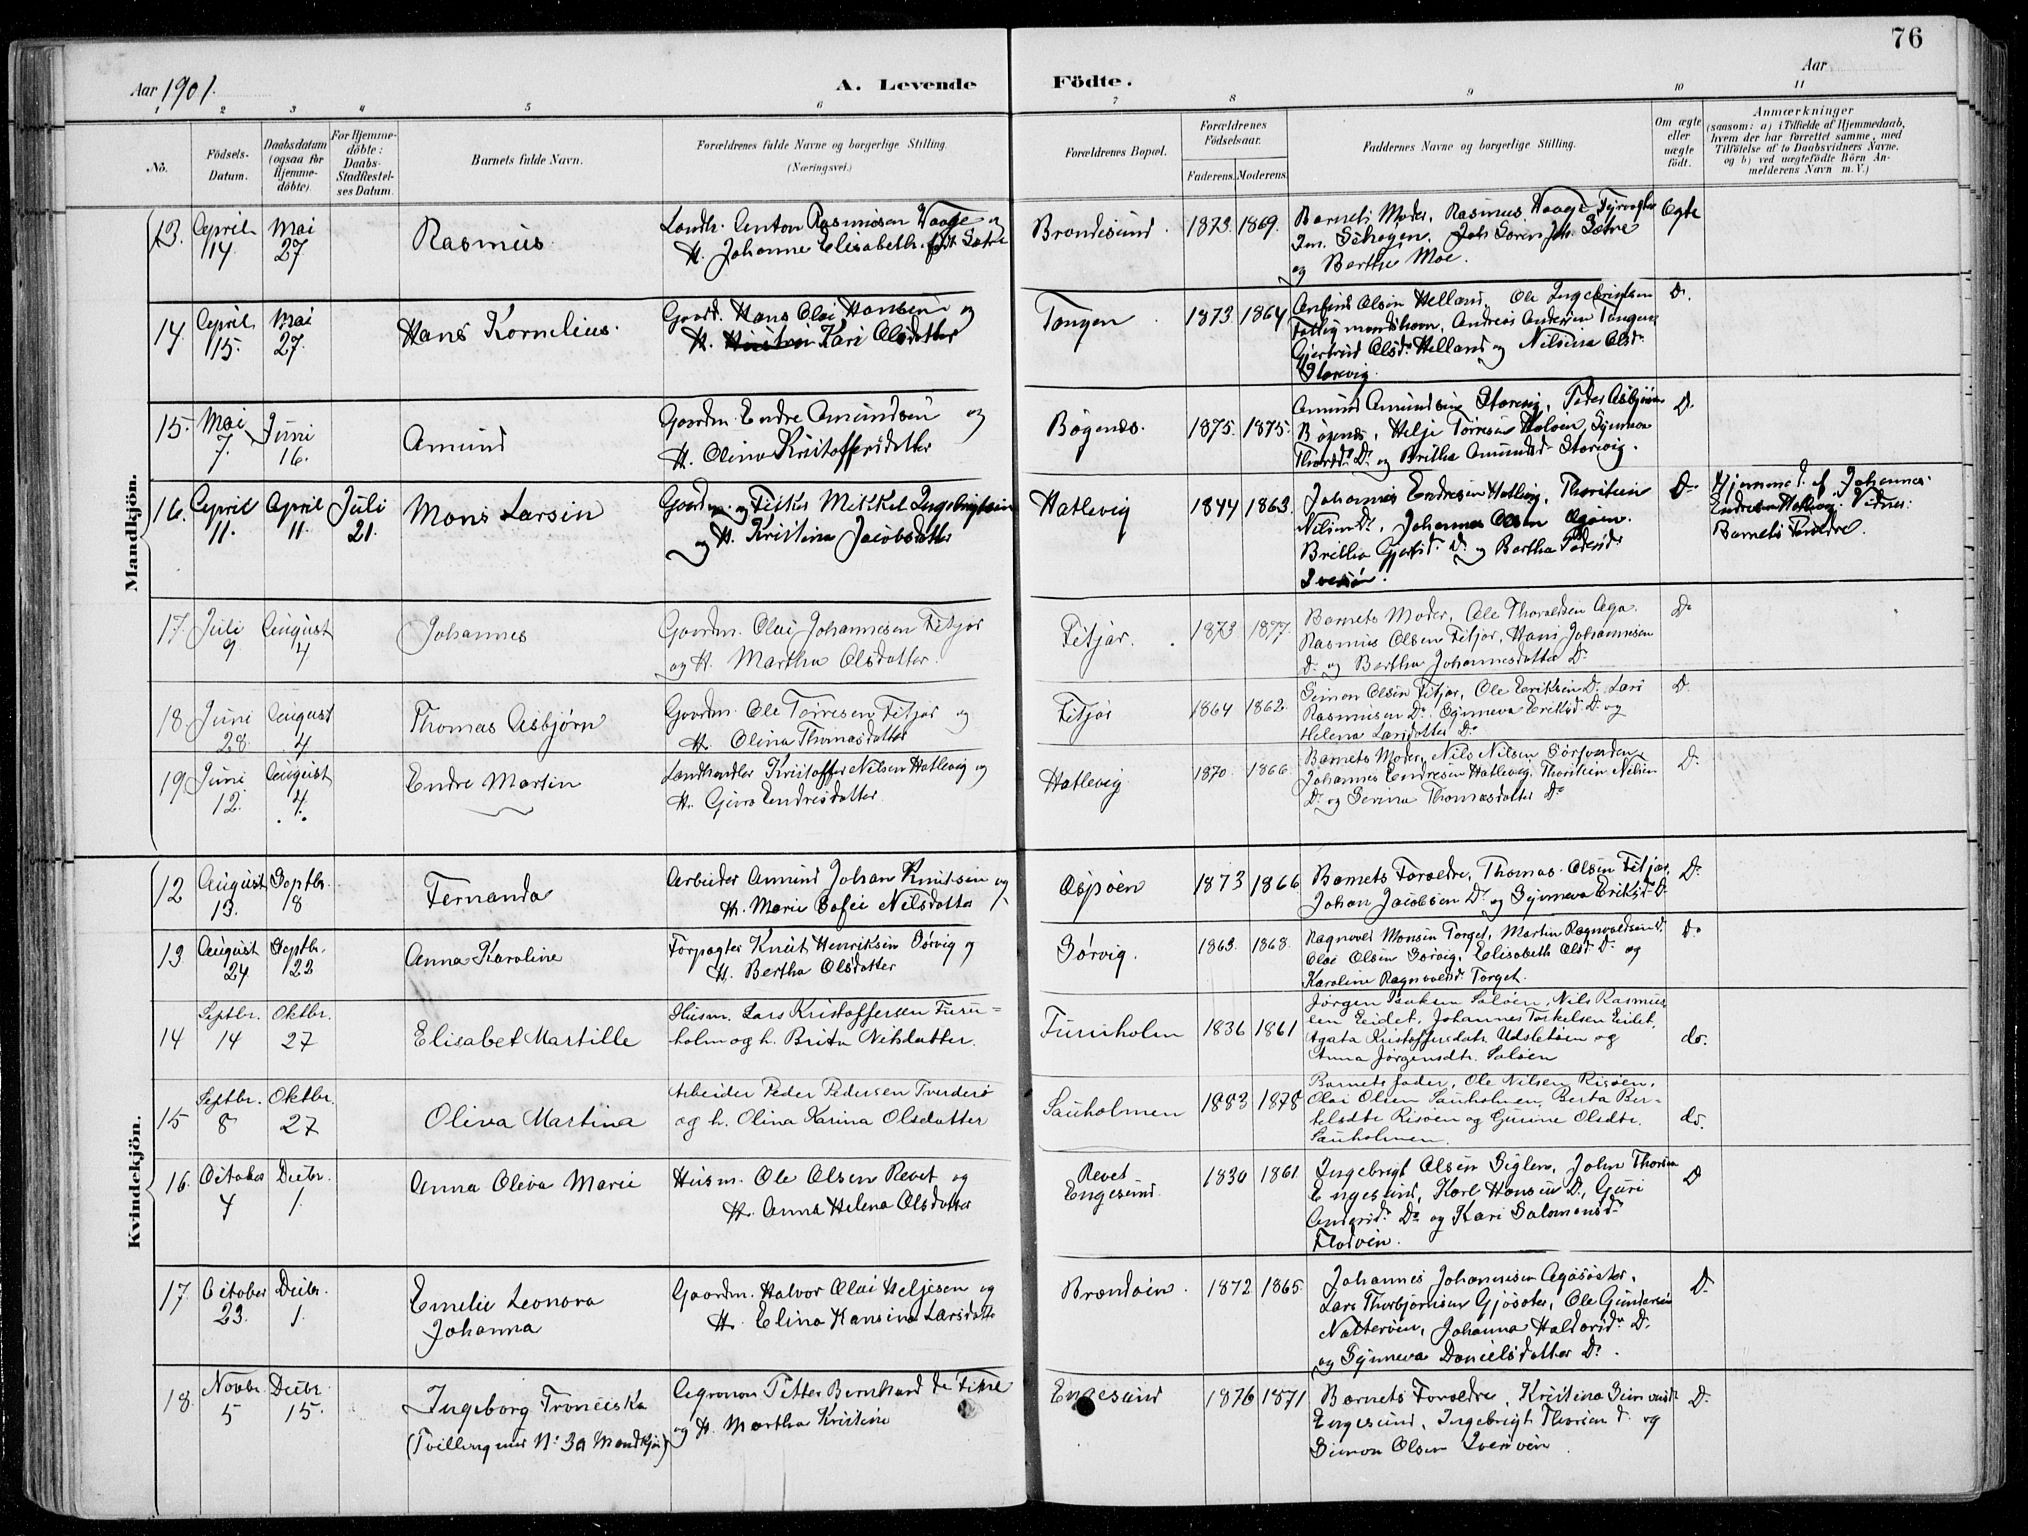 76
Aar 1901. A. Levende Födte. Aar
1 2 3 4 5 6 7 8 9 10 11
No. Födsels-Datum. Daabsdatum (ogsaa for Hjemme-döbte). For Hjemme-döbte: Daabs-Stadfæstel-ses Datum. Barnets fulde Navn. Forældrenes fulde Navne og borgerlige Stilling. (Næringsvei.) Forældrenes Bopæl. Forældrenes Födselsaar. Faderens. Moderens. Faddernes Navne og borgerlige Stilling. Om ægte eller uægte födt. Anmærkninger
(saasom: a) i Tilfælde af Hjemmedaab, hvem der har forrettet samme, med Tilföielse af to Daabsvidners Navne, og b) ved uægtefödte Börn An-melderens Navn m. V.)
Mandkjön.
13. April 14. Mai 27. Rasmus. Landh. Anton Rasmusen Vaage og
H. Johanne Elisabeth født Sætre
Brandesund. 1873. 1869. Barnets Moder, Rasmus Vaage, Fyrvogter
Søren Joh. Sætre
og Berthe Moe.
Ægte
14. April 15. Mai 27. Hans Kornelius. Gaard. Hans Olai Hansen og
H. Kari Olsdatter
Tangen. 1873 1864 Arnfind Olsen Helland, Ole Ingebrigtsen
Andreas Andersen Tangen
Gjertrud Olsd. Helland og Nilsina Olsd.
Storevig.
Do.
15. Mai 7. Juni 16. Amund Gaardm. Endre Amundsen og
H. Olina Kristoffersdatter
Bøgenæs. 1875. 1875. Amund Amundsen Storevig, Peder Asbjørn
Bøgenæs, Helje Tørresen
D. og Britha Amundsd. Storevig.
D.
16. April 11. April 11. Juli 21. Mons Larsen Gaardm. og Fisker Mikkel Ingebrigtsen
og H. Kristina Jacobsdatter
Hatlevig 1844 1863. Johannes Endresen Hatlevig, Thorstein
Nilsen Do., Johannes Olsen
Bretha Gjertsd. Do. og Bertha Pedersd.
Do. Hjemmed. af Johannes
Endresen Hatlevig. Vidner:
Barnets Forældre.
17. Juli 9. August 4 Johannes Gaardm. Olai Johannesen Fitjar
og H. Martha Olsdatter.
Fitjar. 1873 1877. Barnets Moder, Ole Thoraldsen Aga.
Rasmus Olsen Fitjar, Hans Johannesen
Do. og Bertha Johannesdatter Do.
Do
18. Juni 28. August 4 Thomas Asbjørn Gaardm. Ole Tørresen Fitjar og
H. Olina Thomasdatter
Fitjar 1864 1862. Simon Olsen Fitjar, Ole Eriksen D. Lars
Rasmusen Do, Synneva Eriksd. D. og
Helena Larsdatter Do
D.
19. Juni 12. August 4. Endre Martin Landhandler Kristoffer Nilsen Hatlevig og
H. Guro Endresdatter.
Hatlevig 1870. 1866. Barnets Moder, Nils Nilsen
Johannes Endresen Hatlevig, Thorstein Nilsen
Do. og Serina Thomasdatter Do
D.
Kvindekjön.
12 August 13. Septbr. 18 Fernanda Arbeider Amund Johan Knutsen og
H. Marie Sofie Nilsdatter
Aspøen 1873 1866. Barnets Forældre, Thomas Olsen Fitjar,
Johan Jacobsen D. og Synneva Eriksd. D.
D.
13 August 24 Septbr. 22 Anna Karoline Forpagter Knut Henriksen Sørvig og
H. Bertha Olsdatter
Sørvig. 1863. 1868. Ragnvald Monsen Torget, Martin Ragnvaldsen D.
Olai Olsen Sørvig, Elisabeth Olsd. D. og
Karoline Ragnvaldsd. Torget.
Do
14 Septbr. 14 Oktbr. 27 Elisabet Martille Husm. Lars Kristoffersen Furu-
holm og h. Brita Nilsdatter.
Furuholm 1836 1861 Jørgen Isaksen Saløen, Nils Rasmus-
sen Eidet, Johannes Torkelsen Eidet,
Agata Kristoffersdatr. Udsletøen og
Anna Jørgensdtr. Saløen
do.
15 Septbr. 8 Oktbr. 27 Oliva Martina Arbeider Peder Pedersen Tverderø
og h. Olina Karina Olsdatter
Sauholmen 1883 1878 Barnets fader, Ole Nilsen Risøen,
Olai Olsen Sauholmen, Berta Ber-
telsdtr Risøen og Gurine Olsdtr.
Sauholmen.
do.
16. October 4 Decbr. 1. Anna Oliva Marie Husm. Ole Olsen Revet og
H. Anna Helena Olsdatter
Revet
Engesund. 1830 1861. Ingebrigt Olsen Siglen, John Thorsen
Engesund, Karl Hansen D., Guri
Do og Kari Salomonsd.
D
17. October 23. Decbr. 1. Emelie Leonora
Johanna
Gaardm. Halvor Olai Heljesen og
H. Elina Hansina Larsdatter
Brandøen. 1872 1865. Johannes Johannesen Agasøster,
Lars Thorbjørnsen Gjøsøter, Ole Gundersen
Natterøen, Johanna Haldorsd. D.
og Synneva Danielsdatter Do.
D.
18. Novbr. 5 Decbr. 15. Ingeborg Franciska
(Tvilling med No. 39 Mandkjøn)
Agronom Petter Bernhard de Fine
og H. Martha Kristine
Engesund 1876 1871 Barnets Forældre, Kristina
Engesund, Ingebrigt Thorsen D. og
Simon Olsen
D.